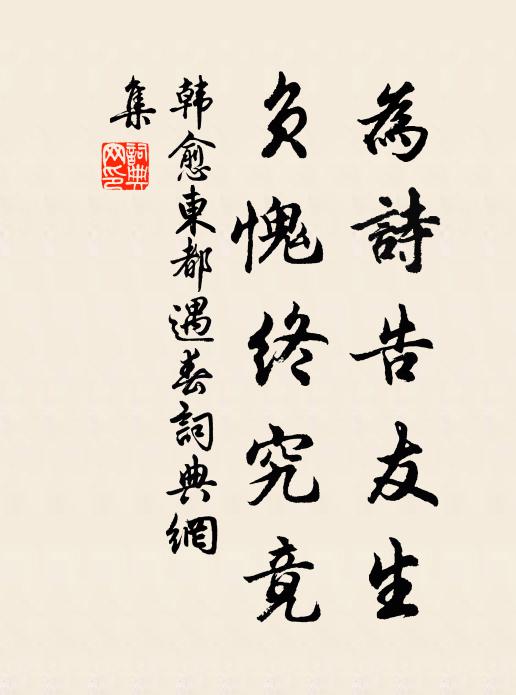 為詩告友生
負愧終究竟
韩愈東都遇春詞典網
集
詞典
网印